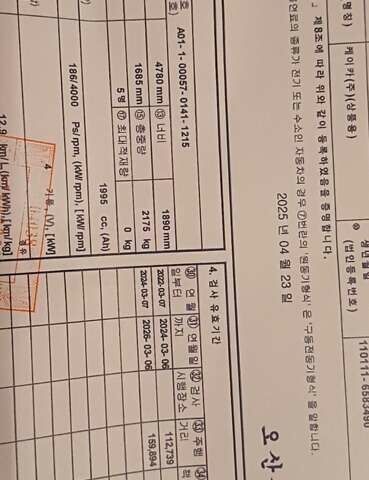 명칭)
케이카(주)(상품용)
생년월일
(법인등록번호)
110111-6583490
제8조에 따라 위와 같이 등록하였음을 증명합니다.
연료의 종류가 전기 또는 수소인 자동차의 경우 ⑦번란의 '원동기형식' 은 '구동전동기형식' 을 말합니다.
2025 년 04 월 23 일
오산
호)
A01-1-00057-0141-1215
4780 mm ⑬ 너비 1890 mm
1685 mm ⑮ 총중량 2175 kg
5 명 ⑰ 최대적재량 0 kg
1995 cc, (Ah)
186/4000 Ps/rpm, (kW/rpm), [kW/rpm]
4 기통, (V), [kW]
12.9 km/L,(km/kWh),[km/kg]
4. 검사 유효기간
㉚ 연월일부터 ㉛ 연월일까지 ㉜ 검사시행장소 ㉝ 주행거리 ㉞
2022-03-07 2024-03-06 112,739
2024-03-07 2026-03-06 159,894